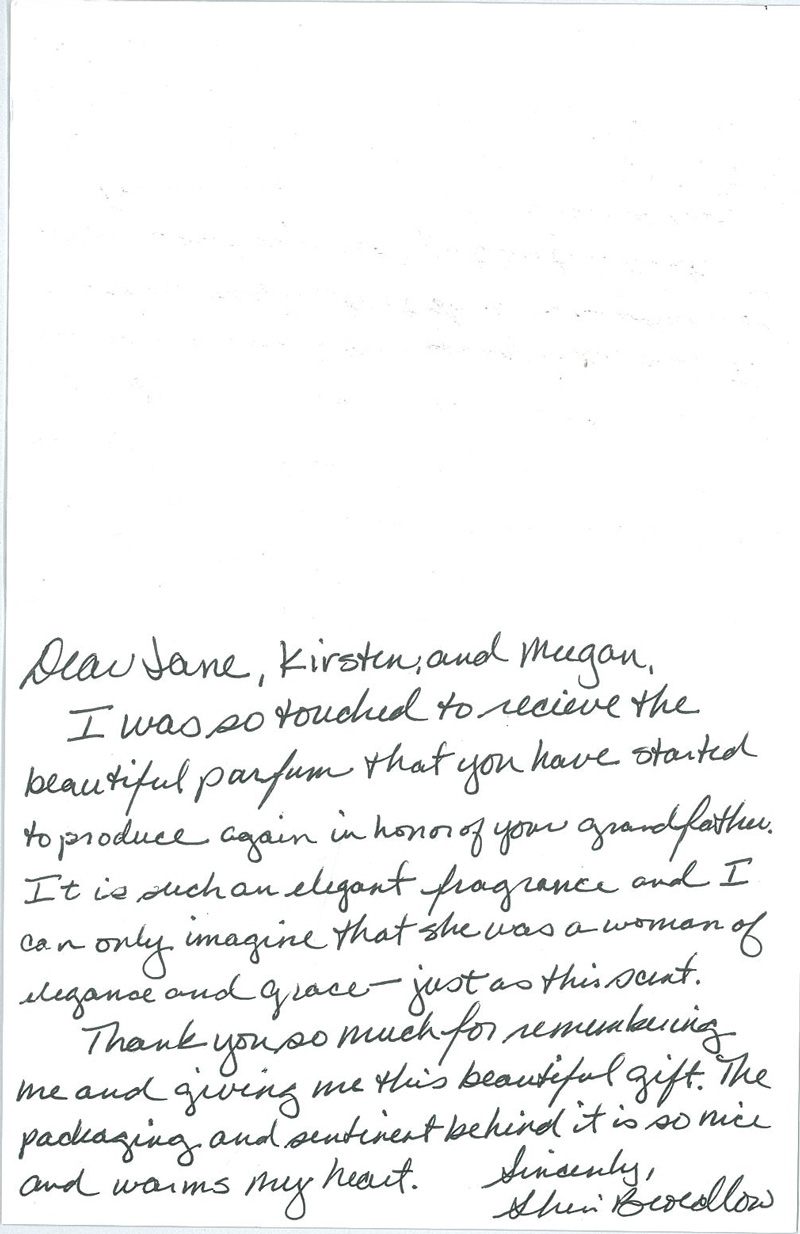 Dear Jane, Kirsten, and Meegan,
I was so touched to recieve the
beautiful parfum that you have started
to produce again in honor of your grandfather.
It is such an elegant fragrance and I
can only imagine that she was a woman of
elegance and grace – just as this scent.
Thank you so much for remembering
me and giving me this beautiful gift. The
packaging and sentiment behind it is so nice
and warms my heart. Sincerely,
Sheri